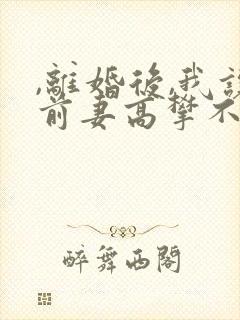 ,離婚後,我讓
前妻高攀不
醉舞西閣